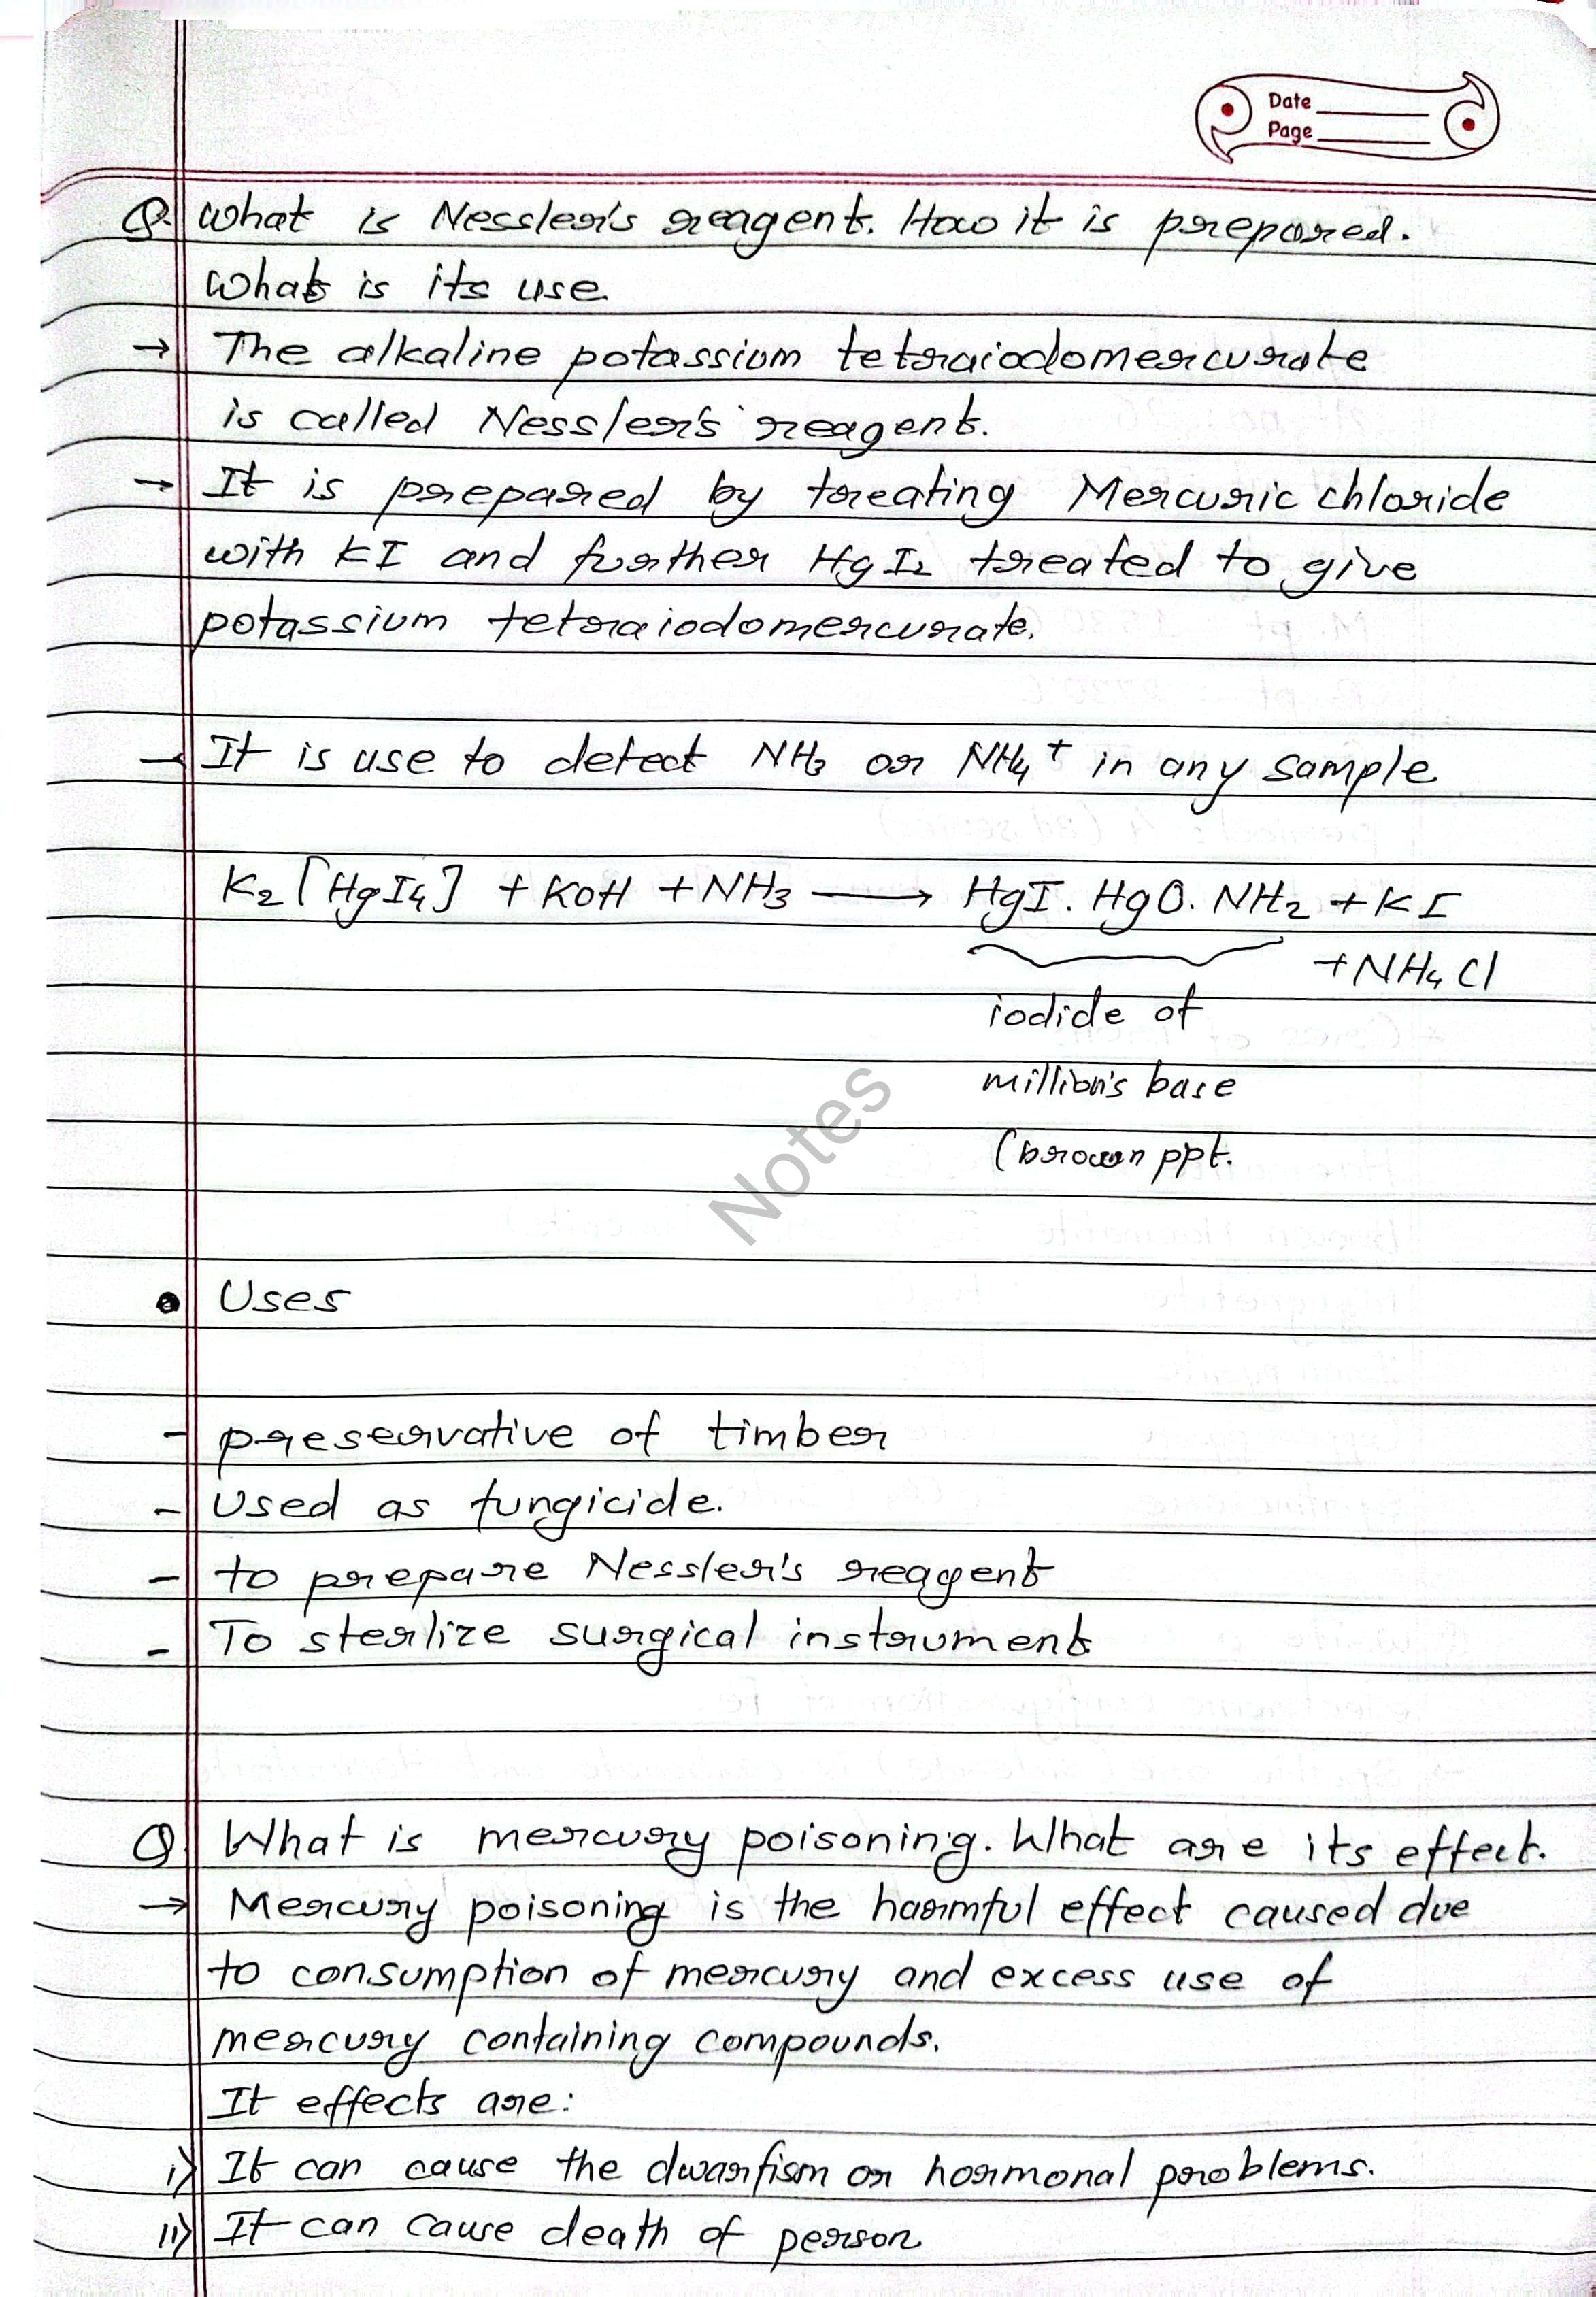 Date
Page
Q. What is Nessler's reagent. How it is prepared.
What is its use.
→ The alkaline potassium tetraiodomercurate
is called Nessler's reagent.
→ It is prepared by treating Mercuric chloride
with KI and further HgI₂ treated to give
potassium tetraiodomercurate.
→ It is use to detect NH₃ or NH₄⁺ in any sample
K₂[HgI₄] + KOH + NH₃ ⟶ HgI. HgO. NH₂ + KI
+ NH₄Cl
iodide of
million's base
(brown ppt.
Notes
• Uses
- preservative of timber
- Used as fungicide.
- to prepare Nessler's reagent
- To sterlize surgical instrument
Q. What is mercury poisoning. What are its effect.
→ Mercury poisoning is the harmful effect caused due
to consumption of mercury and excess use of
mercury containing compounds.
It effects are:
i) It can cause the dwarfism or hormonal problems.
ii) It can cause death of person